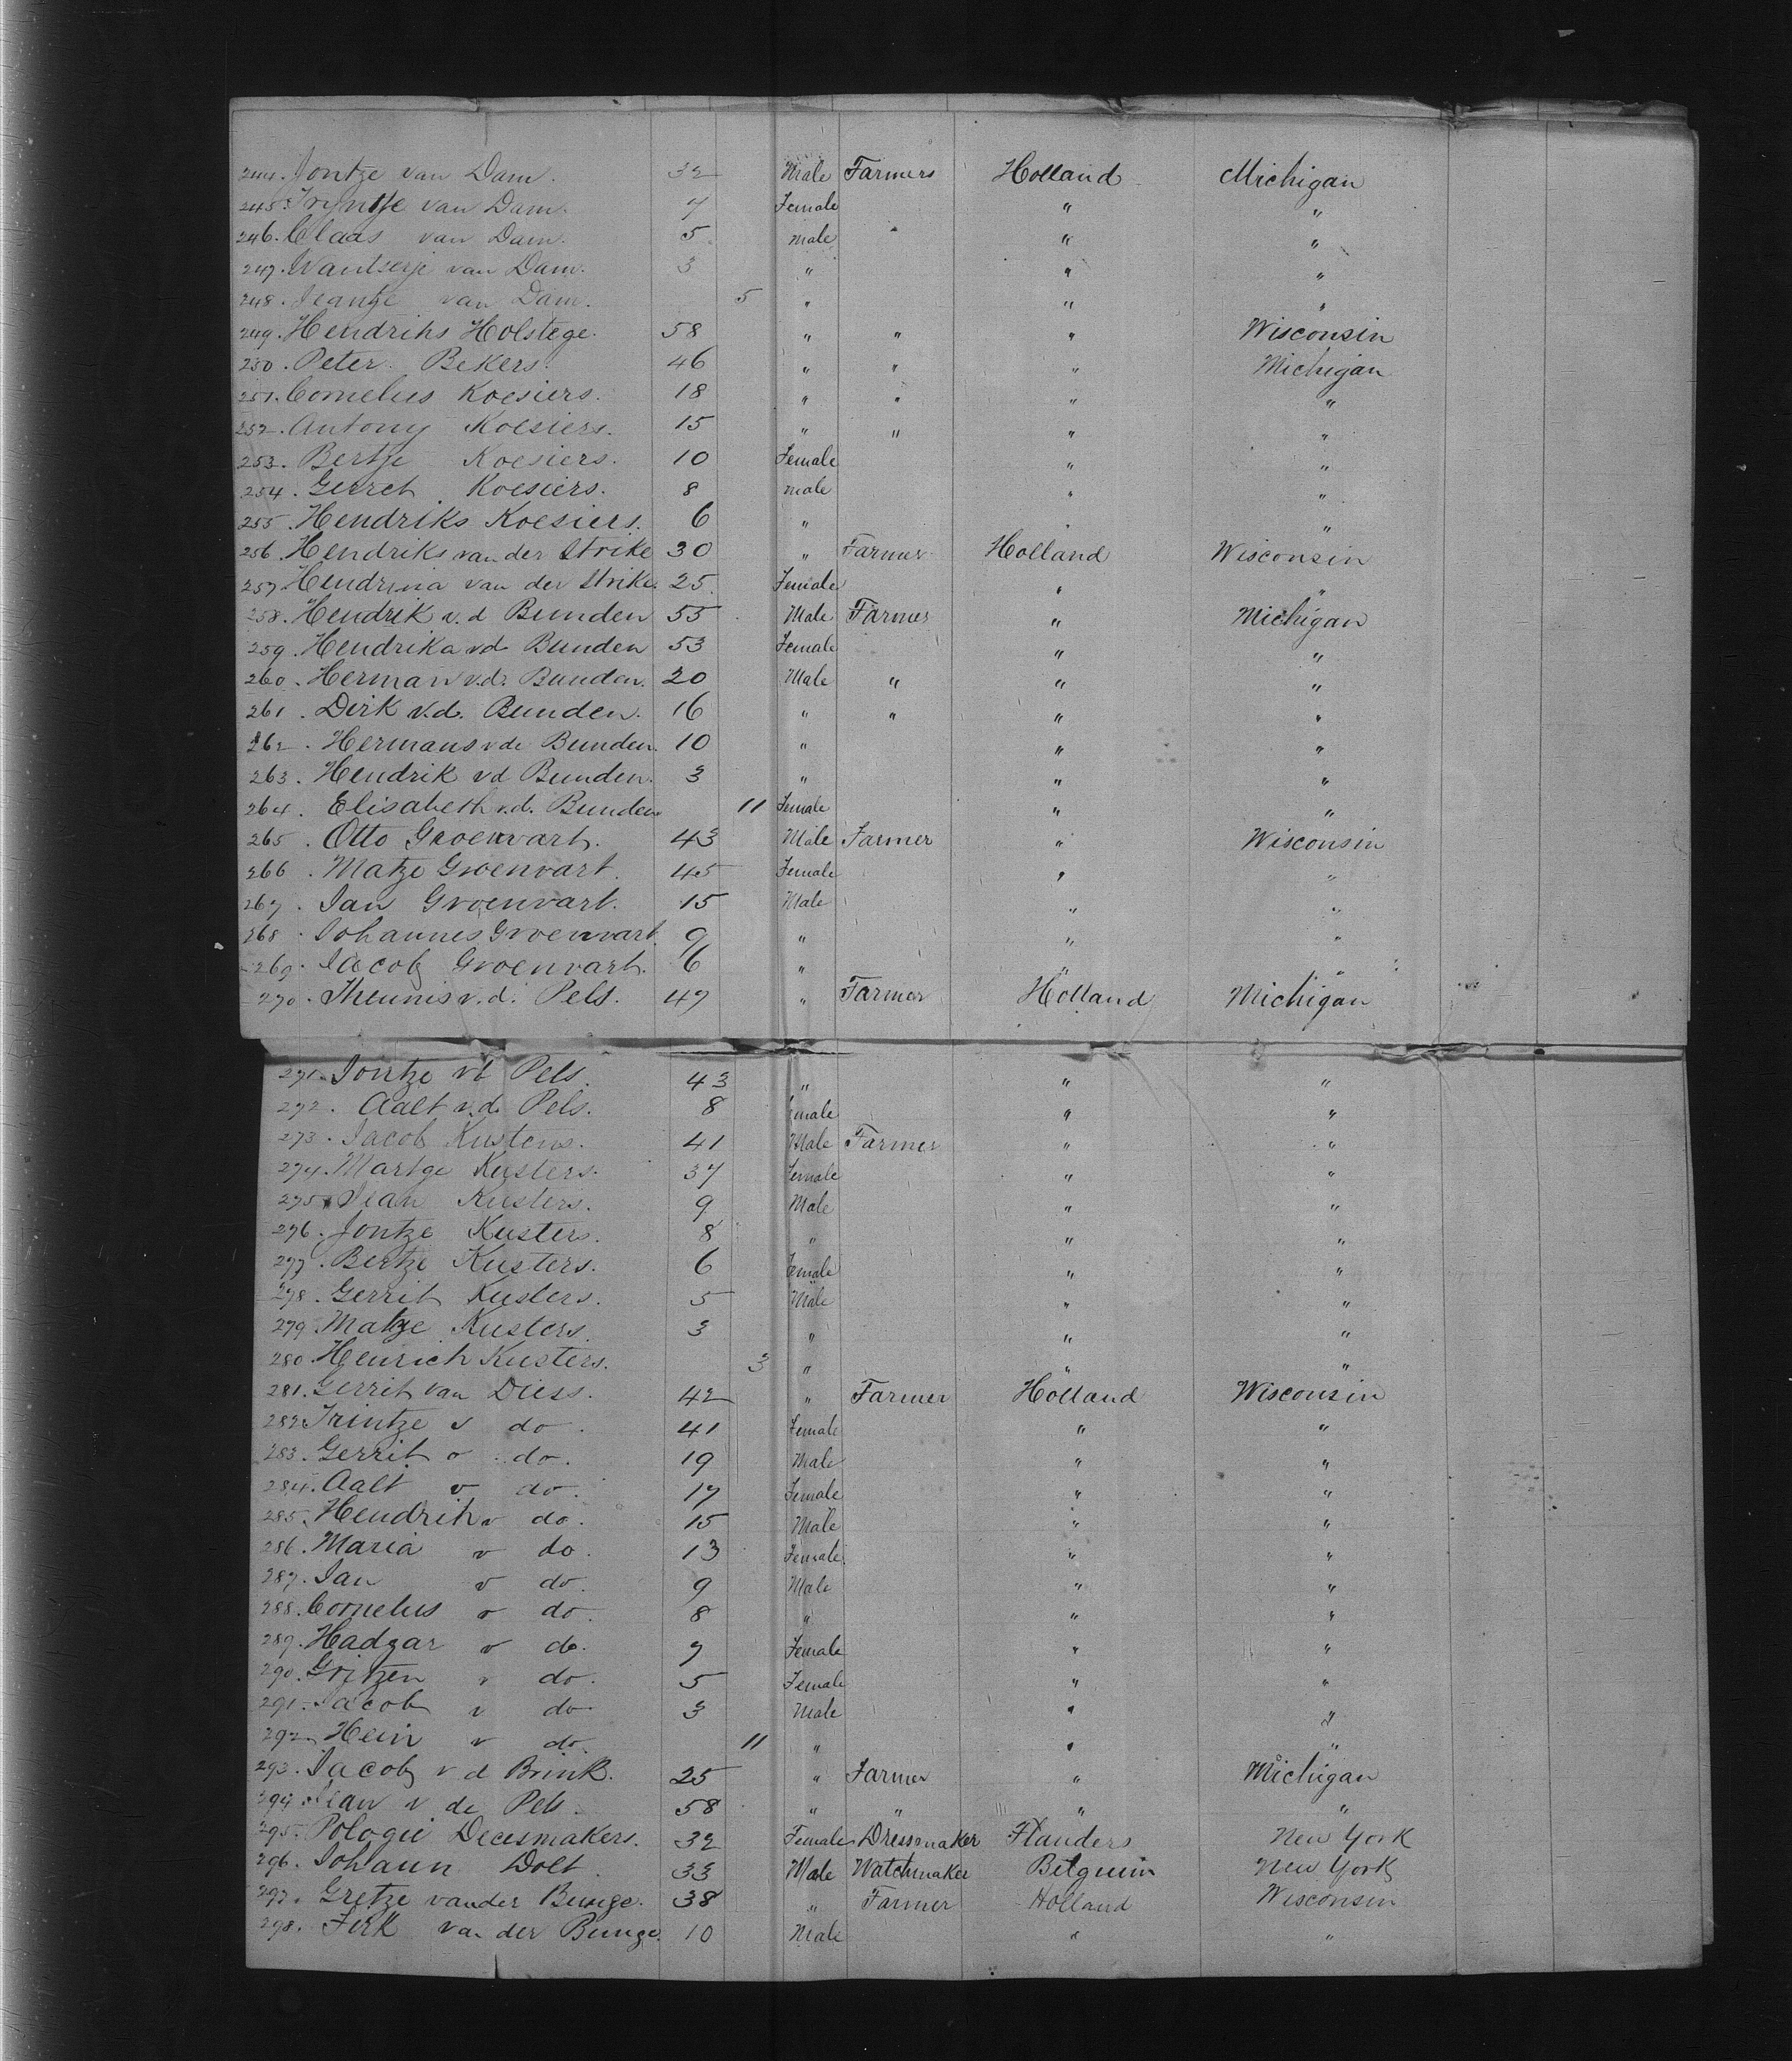 244. Jontze van Dam. 32 Male Farmers Holland Michigan
245. Tryntje van Dam. 7 Female " "
246. Claas van Dam. 5 Male " " "
247. Wantserje van Dam. 3 " " "
248. Jeantje van Dam. 5 " " "
249. Hendriks Holstege. 58 " " " Wisconsin
250. Peter Bekers. 46 " " " Michigan
251. Cornelus Koesiers. 18 " " " "
252. Antony Koesiers. 15 " " " "
253. Bertje Koesiers. 10 Female " "
254. Gerret Koesiers. 8 Male " "
255. Hendriks Koesiers. 6 " " "
256. Hendriks van der Strike 30 " Farmer Holland Wisconsin
257. Hendrina van der Strike. 25. Female " "
258. Hendrik v.d Bunden 55 Male Farmer " Michigan
259. Hendrika vd Bunden 53 Female " "
260. Herman v.d. Bunden. 20 Male " " "
261. Dirk v.d. Bunden. 16 " " " "
262. Hermans vd. Bunden. 10 " " "
263. Hendrik vd Bunden. 3 " " "
264. Elisabeth v.d. Bunden 11 Female " "
265. Otto Groenvart. 43 Male Farmer " Wisconsin
266. Matze Groenvart. 45 Female " "
267. Jan Groenvart. 15 Male " "
268. Johannes Groenvart. 9 " " "
269. Jacob Groenvart. 6 " " "
270. Theunis v.d. Pels. 47 " Farmer Holland Michigan
271. Jontze vd Pels. 43 " " "
272. Aalt v.d. Pels. 8 Female " "
273. Jacob Kusters. 41 Male Farmer " "
274. Martge Kusters. 37 Female " "
275. Jean Kusters. 9 Male " "
276. Jontze Kusters. 8 " " "
277. Bertze Kusters. 6 Female " "
278. Gerrit Kusters. 5 Male " "
279. Matze Kusters. 3 " " "
280. Henrich Kusters. 3 " " "
281. Gerrit van Diess. 42 " Farmer Holland Wisconsin
282. Trintze v do. 41 Female " "
283. Gerrit v do. 19 Male " "
284. Aalt v do. 17 Female " "
285. Hendrik v do. 15 Male " "
286. Maria v do. 13 Female " "
287. Jan v do. 9 Male " "
288. Cornelus v do. 8 " " "
289. Hadgar v do. 7 Female " "
290. Gritzen v do. 5 Female " "
291. Jacob v do. 3 Male " "
292. Hein v do. 11 " " "
293. Jacob v d Brink. 25 " Farmer " Michigan
294. Jean v de Pels. 58 " " " "
295. Pologii Decesmakers. 32 Female Dressmaker Flanders New York
296. Johann Dolt. 33 Male Watchmaker Belguim New York
297. Gretze vander Bunge. 38 " Farmer Holland Wisconsin
298. Jerk van der Bunge. 10 Male " "